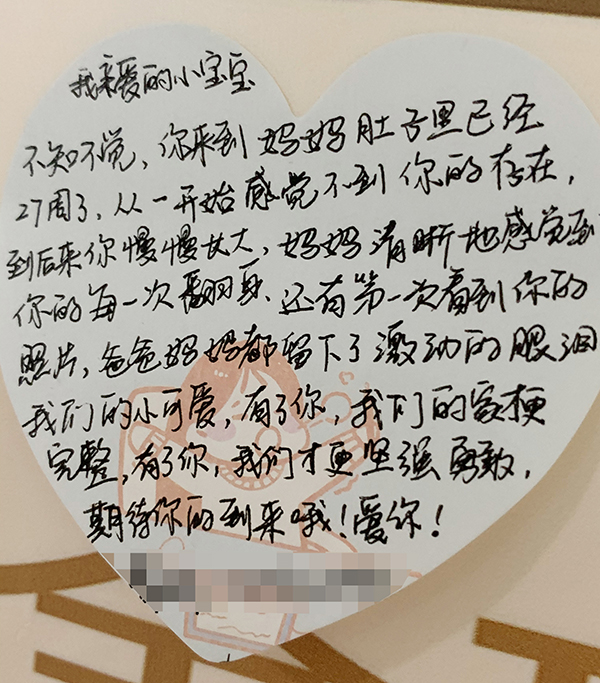 我亲爱的小宝宝
不知不觉，你来到妈妈肚子里已经
27周了，从一开始感觉不到你的存在，
到后来你慢慢长大，妈妈清晰地感觉到
你的每一次翻身，还有第一次看到你的
照片，爸爸妈妈都留下了激动的眼泪
我们的小可爱，有了你，我们的家更
完整，有了你，我们才更坚强勇敢，
期待你的到来哦！爱你！